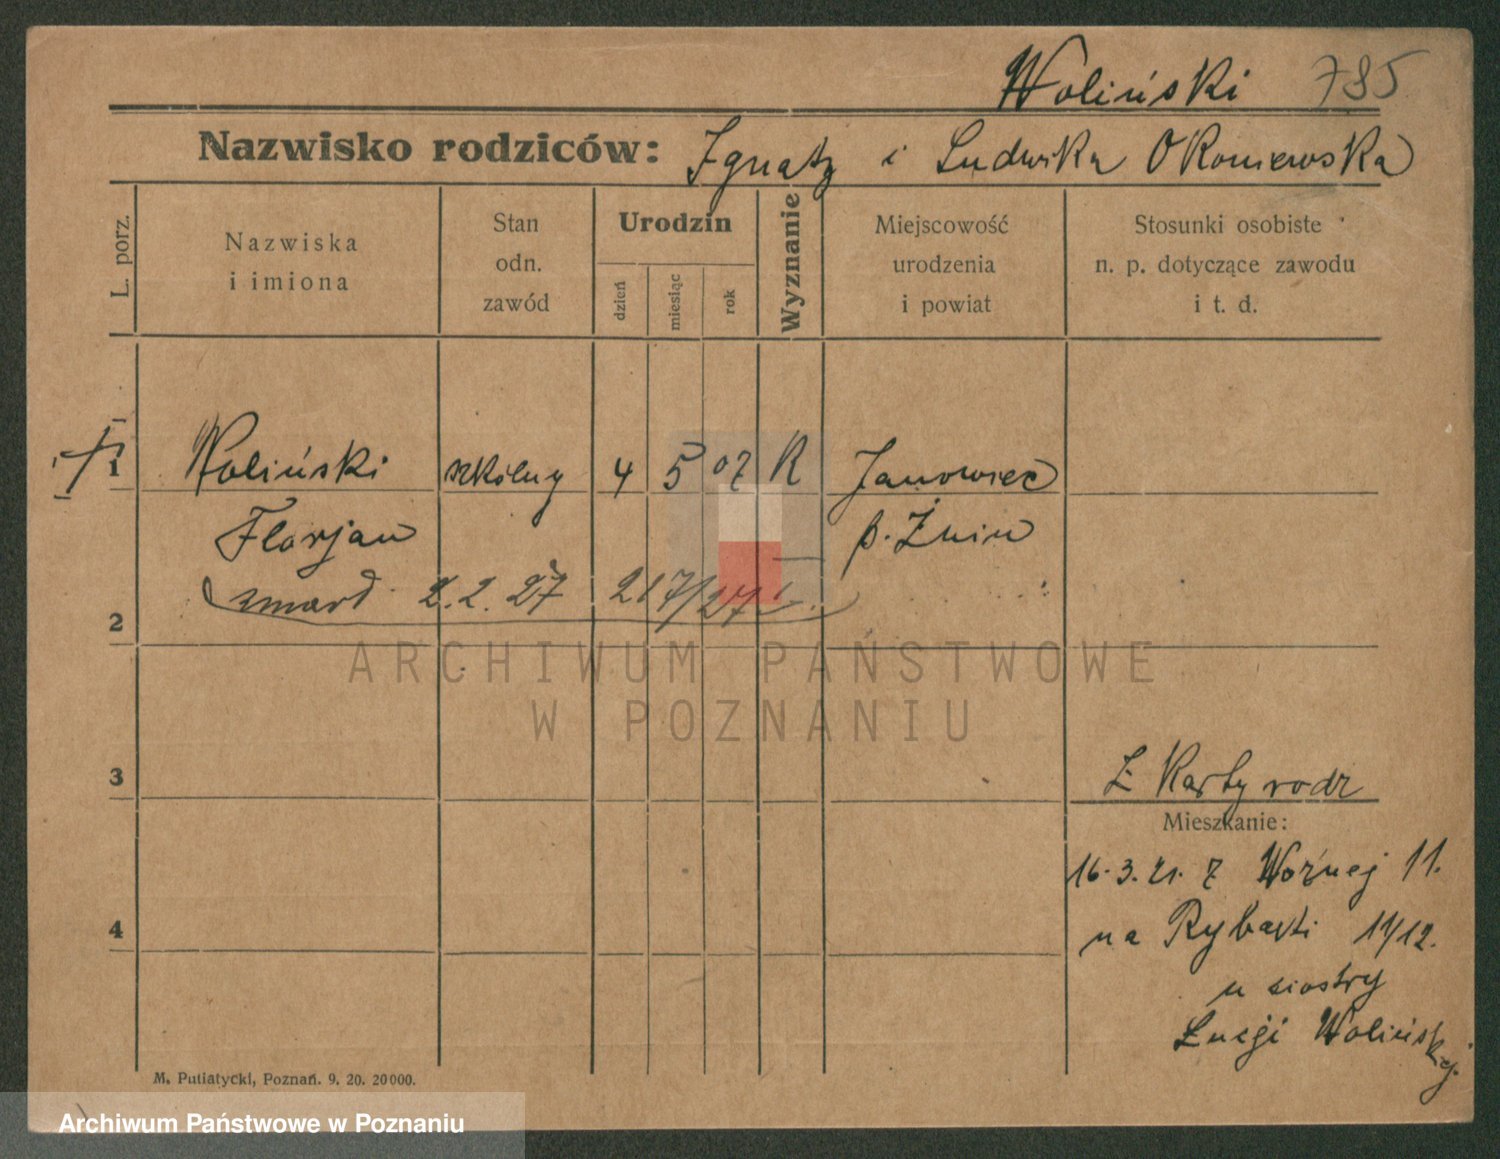 Woliński 785
Nazwisko rodziców: Ignatz i Ludwika Okoniewska
L. porz.
Nazwiska
i imiona
Stan
odn.
zawód
Urodzin
dzień
miesiąc
rok
Wyznanie
Miejscowość
urodzenia
i powiat
Stosunki osobiste
n. p. dotyczące zawodu
i t. d.
1 Woliński szkólny 4 5 07 R Janowiec
Florjan p. Żnin
zmarł 2.2.27 217/27
2
ARCHIWUM PAŃSTWOWE
W POZNANIU
3
Z Karty rodz
Mieszkanie:
16.3.21. z Woźnej 11.
na Rybaki 11/12.
u siostry
Łucji Wolińskiej.
4
M. Putiatycki, Poznań. 9. 20. 20000.
Archiwum Państwowe w Poznaniu